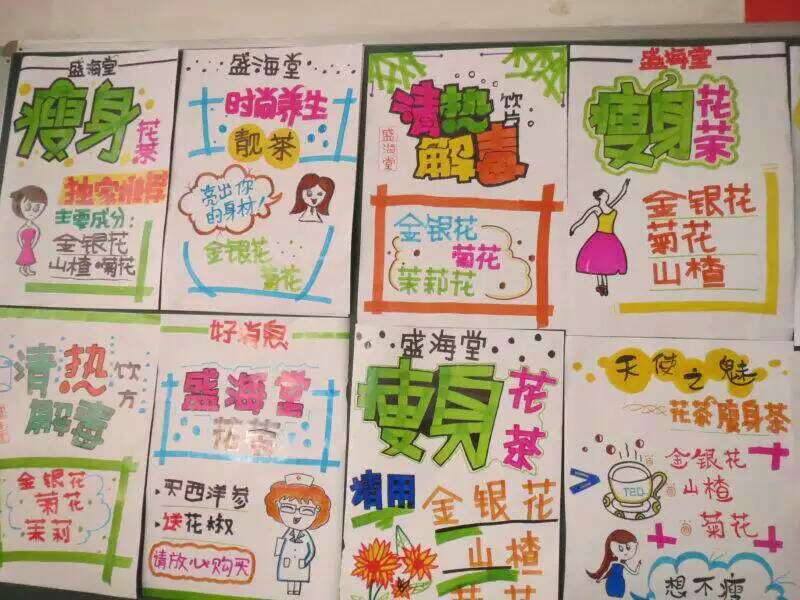 盛海堂
瘦身
花茶
独家推荐
主要成分:
金银花
山楂 菊花
盛海堂
时尚养生
靓茶
亮出你
的身材!
金银花
菊花
清热
解毒
饮片
盛海堂
金银花
菊花
茉莉花
盛海堂
瘦身
花茶
金银花
菊花
山楂
清热
解毒
饮方
金银花
菊花
茉莉
好消息
盛海堂
花茶
买西洋参
送花椒
请放心购买
盛海堂
瘦身
花茶
请用
金银花
山楂
天使之魅
花茶瘦身茶
金银花
山楂
菊花
想不瘦